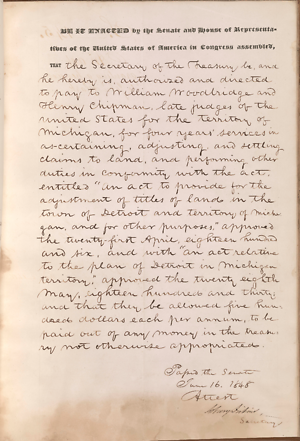 BE IT ENACTED by the Senate and House of Representa-
tives of the United States of America in Congress assembled,
THAT the Secretary of the Treasury be, and
he hereby is, authorized and directed
to pay to William Woodbridge and
Henry Chipman, late judges of the
United States for the territory of
Michigan, for four years' services in
ascertaining, adjusting, and settling
claims to land, and performing other
duties in conformity with the act,
entitled "An act to provide for the
adjustment of titles of land in the
town of Detroit and territory of Mich-
gan, and for other purposes," approved
the twenty-first April, eighteen hundred
and six, and with "an act relative
to the plan of Detroit in Michigan
territory," approved the twenty eighth
May, eighteen hundred and thirty
and that they be allowed five hun-
dred dollars each per annum, to be
paid out of any money in the treasu-
ry not otherwise appropriated.
Passed the Senate
June 16. 1848
Attest
Secretary